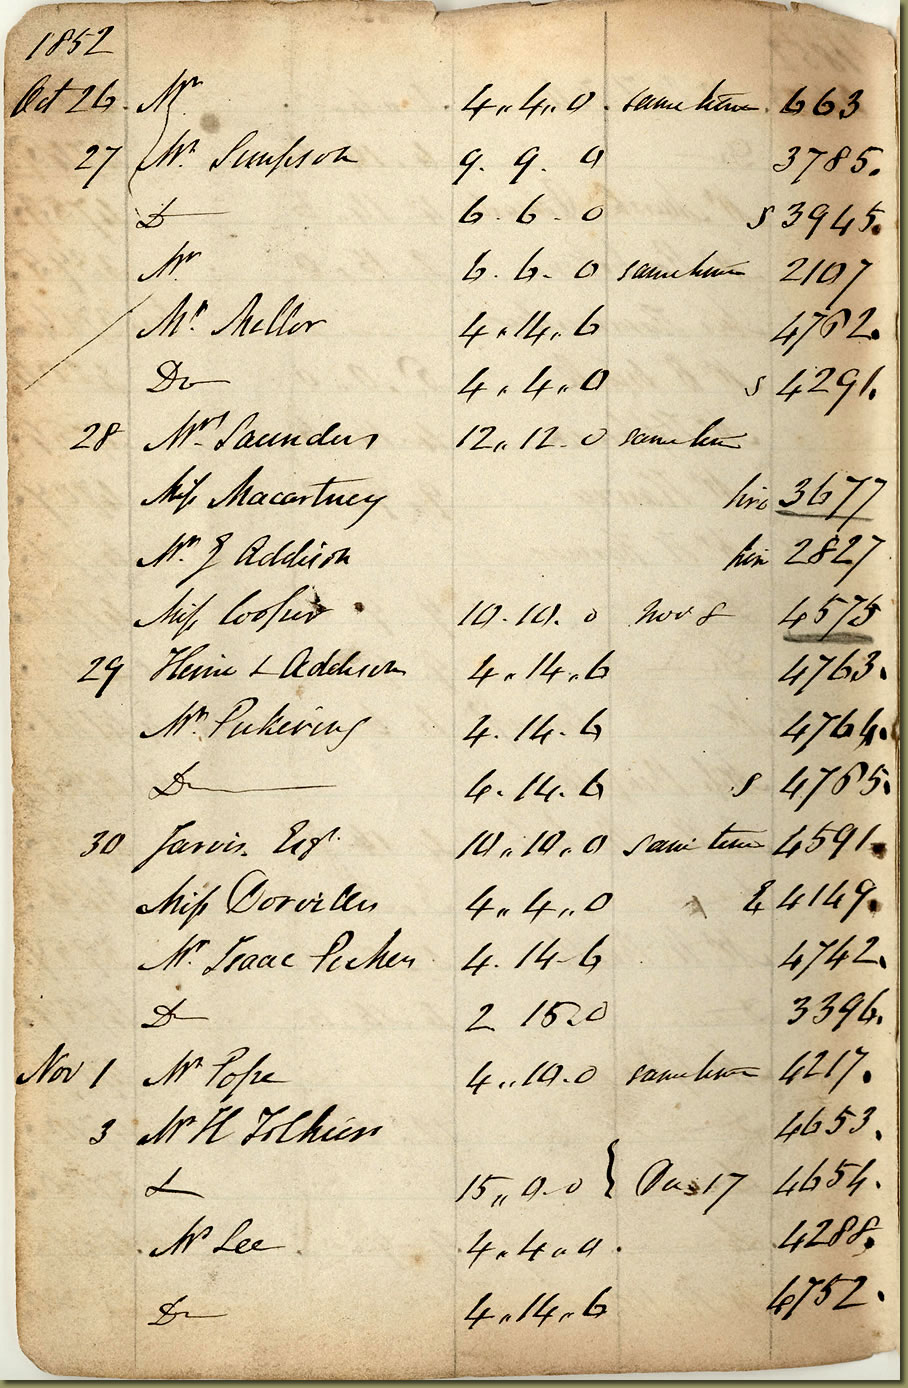 1852
Oct 26 Mr 4..4..0. same time 663
27 Mr Simpson 9. 9. 0 3785.
D 6. 6. 0 s 3945.
Mr 6. 6. 0 same time 2107
Mr Mellor 4..14..6 4762.
Do 4..4..0 s 4291.
28 Mrs Saunders 12..12..0 same time
Miss Macartney hire 3677
Mr J Addison hire 2827
Miss Cooper 10. 10. 0 Nov 8 4575
29 Heine & Addison 4..14..6 4763.
Mr Pickering 4. 14. 6 4764.
D 4. 14. 6 s 4765.
30 Jarvis Esqr 10..10..0 same time 4591.
Miss Dorville 4..4..0 4149.
Mr Isaac 4. 14 6 4742.
D 2 15..0 3396.
Nov 1 Mr Pope 4..10..0 same time 4217.
3 Mr H Tolkien 4653.
& 15..0..0 } 17 4654.
Mr Lee 4..4..0. 4288.
Do 4..14..6 4752.